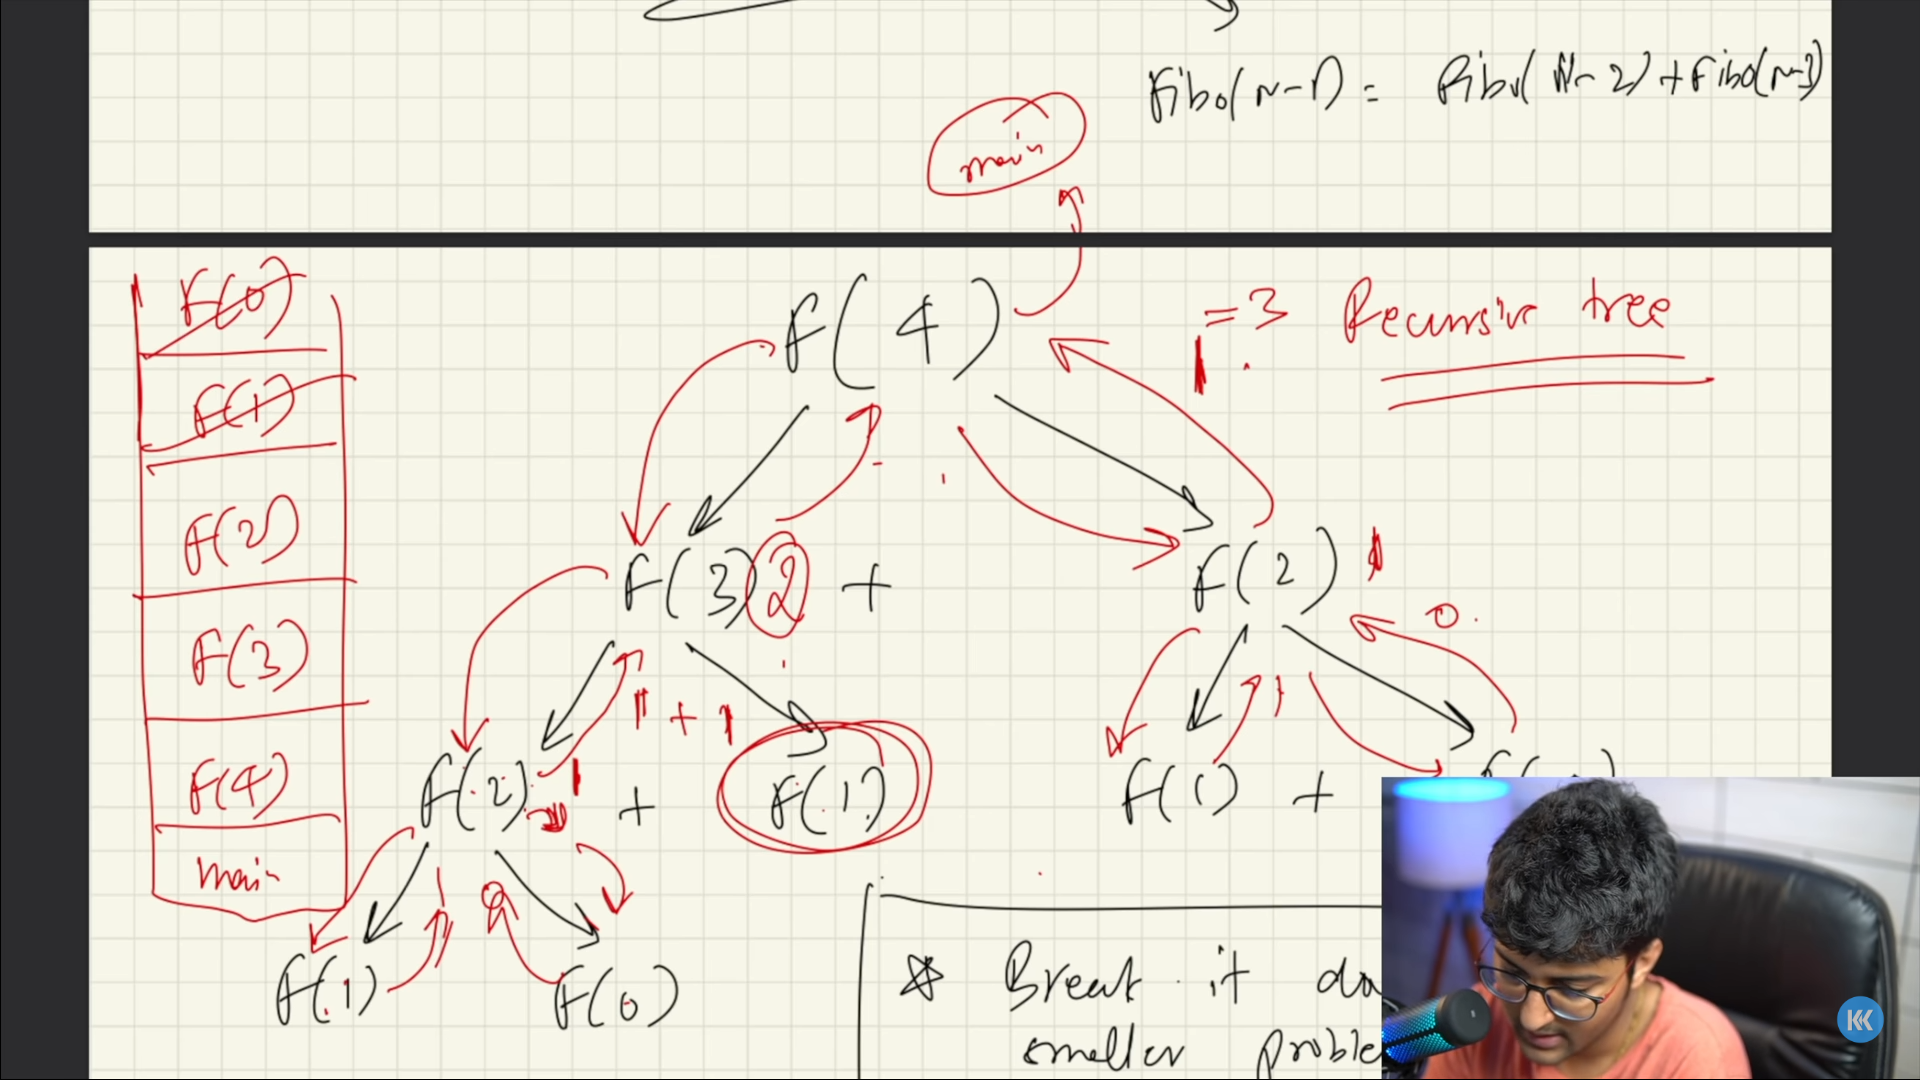 Fibo(N-1) = Fibo(N-2) + Fibo(N-3)
main
F(0)
F(1)
F(2)
F(3)
F(4)
main
F(4)
= 3
1
Recursive tree
F(3) 2 +
F(2) 1
0
1 + 1
1
F(2) 1 + F(1)
F(1) +
1
F(1)
F(0)
* Break it do
smaller proble